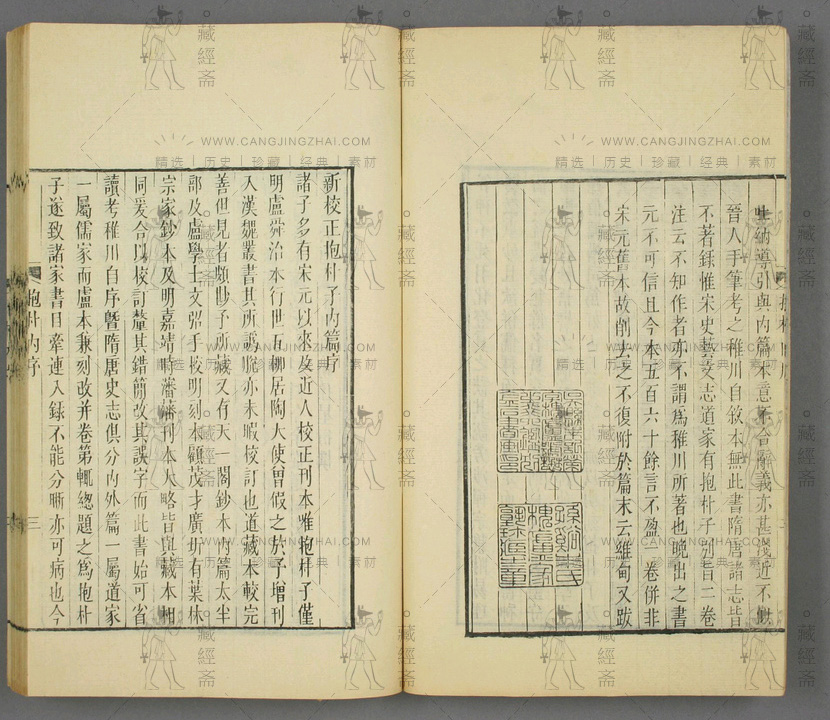 吐納導引與内篇本意不合辭義亦甚淺近不似
晉人手筆考之稚川自敘本無此書隋唐諸志皆
不著錄惟宋史藝文志道家有抱朴子别旨二卷
注云不知作者亦不謂爲稚川所著也晚出之書
元不可信且今本五百六十餘言不盈一卷併非
宋元舊本故削去之不復附於篇末云維甸又跋
新校正抱朴子内篇序
諸子多有宋元以來及近人校正刊本唯抱朴子僅
明盧舜治本行世五柳居陶大使曾假之於予增刊
入漢魏叢書其所譌脱亦未暇校訂也道藏本較完
善但見者頗尠予所藏又有天一閣鈔本内篇太半
部及盧學士文弨手校明刻本顧茂才廣圻有葉林
宗家鈔本及明嘉靖時瀋藩刊本大略皆與藏本相
同爰合以校訂釐其錯簡改其誤字而此書始可省
讀考稚川自序暨隋唐史志俱分内外篇一屬道家
一屬儒家而盧本兼刻改并卷第輒緫題之爲抱朴
子遂致諸家書目牽連入録不能分晰亦可病也今
抱朴内序
三
藏經斋
WWW.CANGJINGZHAI.COM
精选 | 历史 | 珍藏 | 经典 | 素材